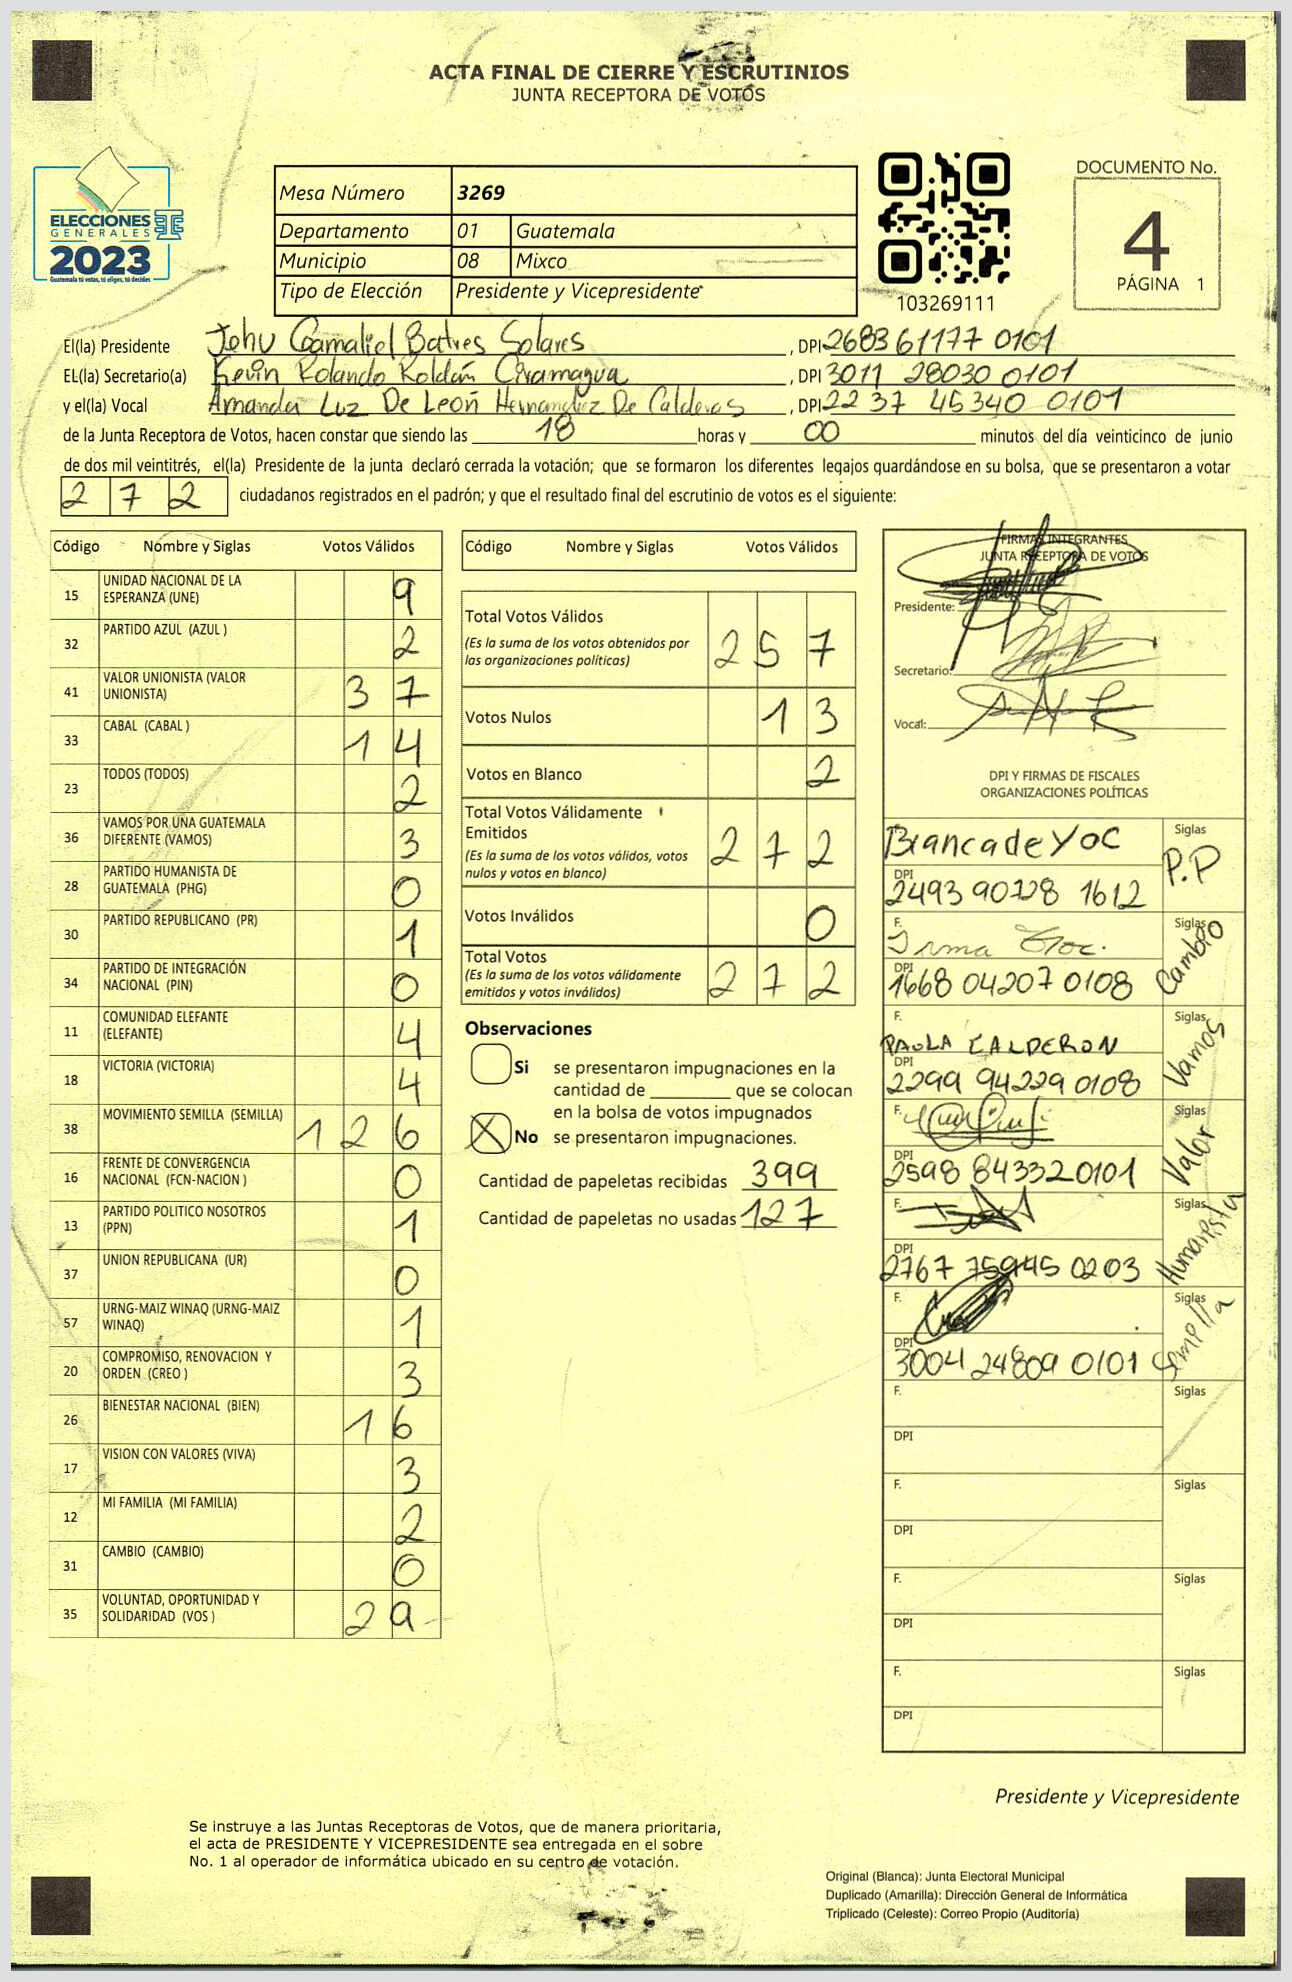 ACTA FINAL DE CIERRE Y ESCRUTINIOS
JUNTA RECEPTORA DE VOTOS
ELECCIONES
GENERALES
2023
Guatemala tú votas, tú eliges, tú decides
Mesa Número 3269
Departamento 01 Guatemala
Municipio 08 Mixco
Tipo de Elección Presidente y Vicepresidente
103269111
DOCUMENTO No.
4
PÁGINA 1
El(la) Presidente Jehu Gamaliel Batres Solares, DPI 2683 61177 0101
EL(la) Secretario(a) Kevin Rolando Roldán Ciramagua, DPI 3011 28030 0101
y el(la) Vocal Amanda Luz De León Hernandez De Calderos, DPI 2237 45340 0101
de la Junta Receptora de Votos, hacen constar que siendo las 18 horas y 00 minutos del día veinticinco de junio
de dos mil veintitrés, el(la) Presidente de la junta declaró cerrada la votación; que se formaron los diferentes legajos guardándose en su bolsa, que se presentaron a votar
272 ciudadanos registrados en el padrón; y que el resultado final del escrutinio de votos es el siguiente:
Código Nombre y Siglas Votos Válidos
15 UNIDAD NACIONAL DE LA ESPERANZA (UNE) 9
32 PARTIDO AZUL (AZUL ) 2
41 VALOR UNIONISTA (VALOR UNIONISTA) 37
33 CABAL (CABAL ) 14
23 TODOS (TODOS) 2
36 VAMOS POR UNA GUATEMALA DIFERENTE (VAMOS) 3
28 PARTIDO HUMANISTA DE GUATEMALA (PHG) 0
30 PARTIDO REPUBLICANO (PR) 1
34 PARTIDO DE INTEGRACIÓN NACIONAL (PIN) 0
11 COMUNIDAD ELEFANTE (ELEFANTE) 4
18 VICTORIA (VICTORIA) 4
38 MOVIMIENTO SEMILLA (SEMILLA) 126
16 FRENTE DE CONVERGENCIA NACIONAL (FCN-NACION ) 0
13 PARTIDO POLITICO NOSOTROS (PPN) 1
37 UNION REPUBLICANA (UR) 0
57 URNG-MAIZ WINAQ (URNG-MAIZ WINAQ) 1
20 COMPROMISO, RENOVACION Y ORDEN (CREO ) 3
26 BIENESTAR NACIONAL (BIEN) 16
17 VISION CON VALORES (VIVA) 3
12 MI FAMILIA (MI FAMILIA) 2
31 CAMBIO (CAMBIO) 0
35 VOLUNTAD, OPORTUNIDAD Y SOLIDARIDAD (VOS ) 29
Código Nombre y Siglas Votos Válidos
Total Votos Válidos 257
(Es la suma de los votos obtenidos por
las organizaciones políticas)
Votos Nulos 13
Votos en Blanco 2
Total Votos Válidamente
Emitidos 272
(Es la suma de los votos válidos, votos
nulos y votos en blanco)
Votos Inválidos 0
Total Votos 272
(Es la suma de los votos válidamente
emitidos y votos inválidos)
Observaciones
Si se presentaron impugnaciones en la
cantidad de ________ que se colocan
en la bolsa de votos impugnados
X No se presentaron impugnaciones.
Cantidad de papeletas recibidas 399
Cantidad de papeletas no usadas 127
FIRMAS INTEGRANTES
JUNTA RECEPTORA DE VOTOS
Presidente:
Secretario:
Vocal:
DPI Y FIRMAS DE FISCALES
ORGANIZACIONES POLÍTICAS
Biancade Yoc Siglas P.P
DPI 2493 90128 1612
F. Irma Siglas Cambio
DPI 1668 04207 0108
F. PAOLA CALDERON Siglas Vamos
DPI 2299 94229 0108
F. Siglas Valor
DPI 2598 84332 0101
F. Siglas Humanista
DPI 2767 75945 0203
F. Siglas Semella
DPI 3004 24809 0101
F. Siglas
DPI
F. Siglas
DPI
F. Siglas
DPI
F. Siglas
DPI
Presidente y Vicepresidente
Se instruye a las Juntas Receptoras de Votos, que de manera prioritaria,
el acta de PRESIDENTE Y VICEPRESIDENTE sea entregada en el sobre
No. 1 al operador de informática ubicado en su centro de votación.
Original (Blanca): Junta Electoral Municipal
Duplicado (Amarilla): Dirección General de Informática
Triplicado (Celeste): Correo Propio (Auditoría)